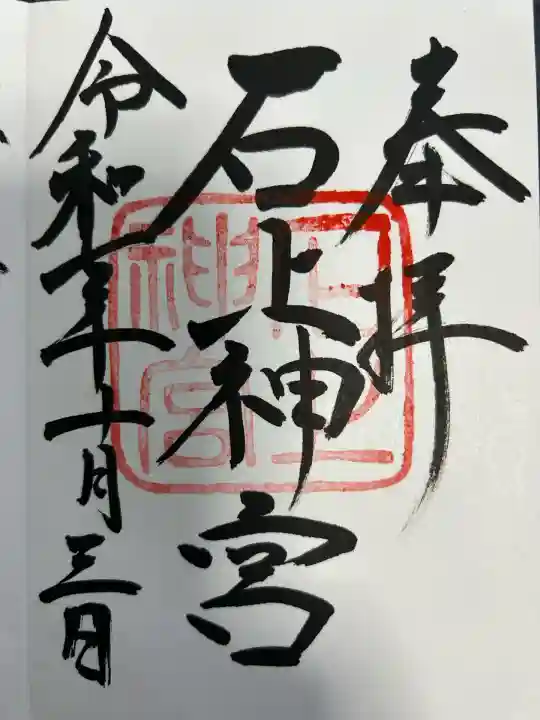 奉拝
石上神宮
令和二年十月三日
石上
神宮